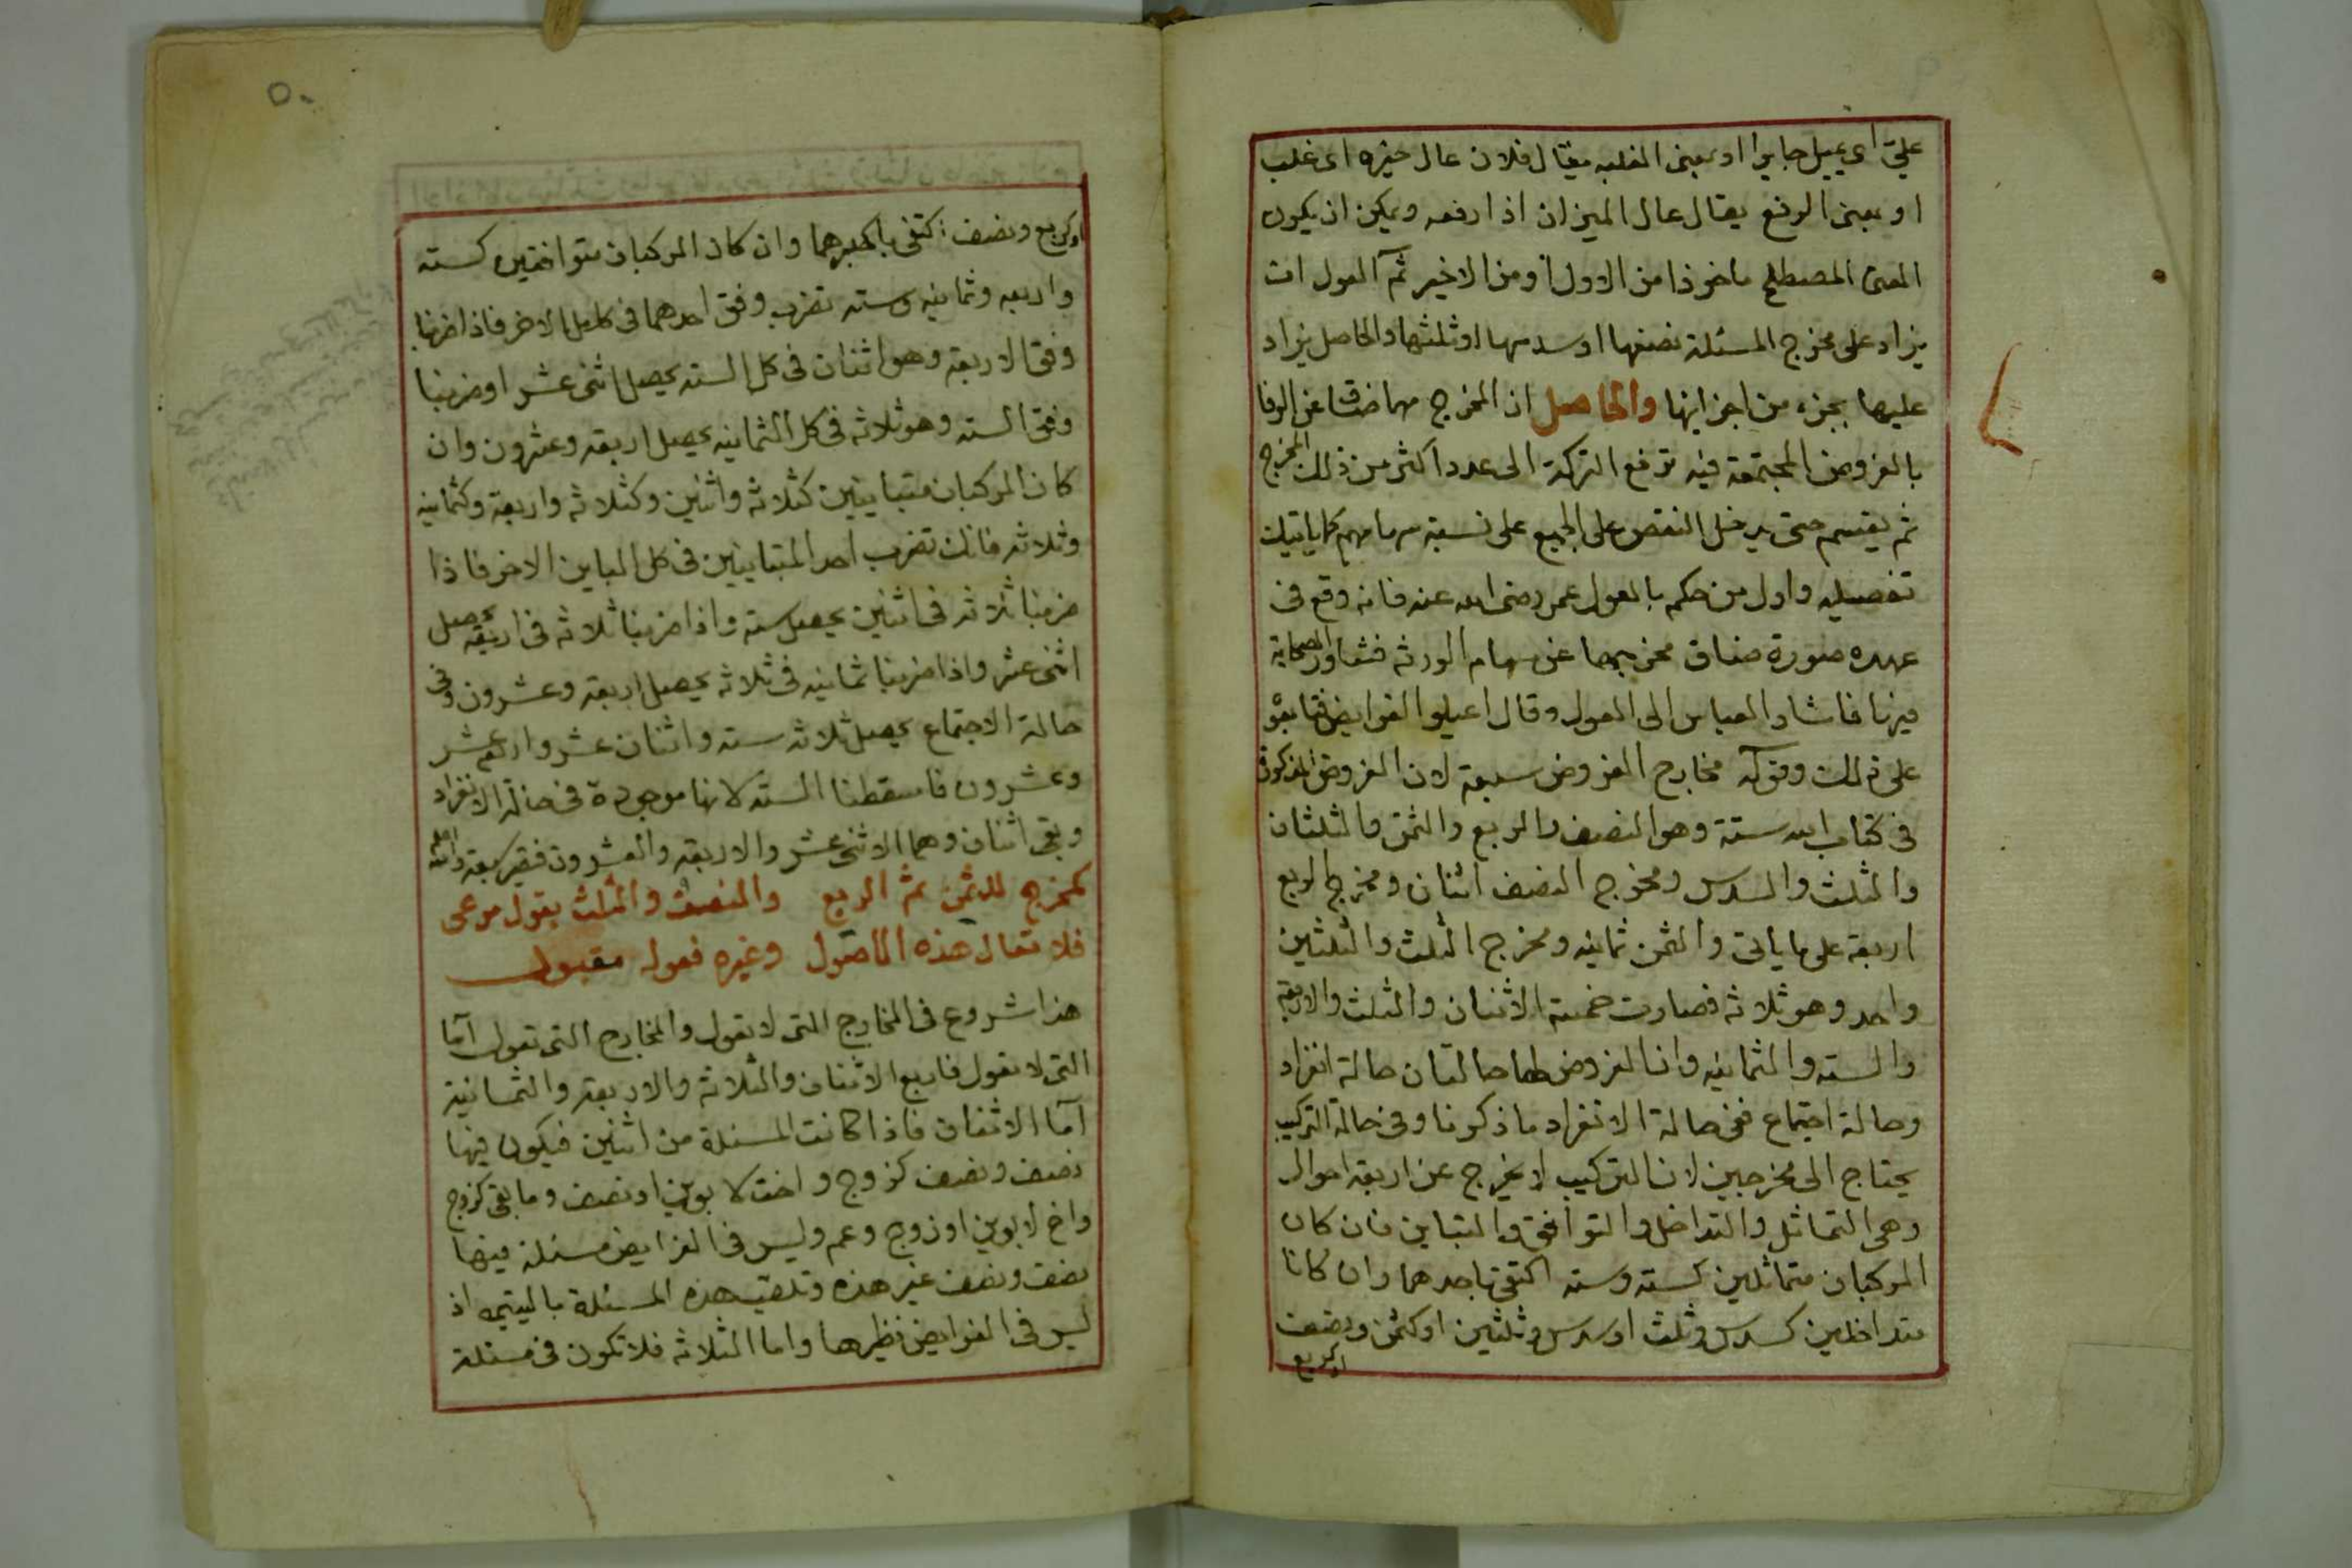 علي اى يميل جايرا او بمعنى الغلبه يقال فلان عال خيره اى غلب
او بمعنى الرفع يقال عال الميزان اذا رفعه ويمكن ان يكون
المعنى المصطلح ماخوذا من الاول او من الاخير ثم العول ان
يزاد على مخرج المسئلة نصفها او سدسها او ثلثها والحاصل يزاد
عليها بجزء من اجزايها والحاصل ان المخرج مهما ضاق عن الوفا
بالفروض المجتمعة فيه ترفع التركة الى عدد اكثر من ذلك المخرج
ثم يقسم حتى يدخل النقص على الجميع على نسبة سهامهم كما ياتيك
تفصيله واول من حكم بالعول عمر رضى الله عنه فانه وقع فى
عهده صورة ضاق مخرجها عن سهام الورثه فشاور الصحابة
فيها فاشار العباس الى العول وقال اعيلوا الفرايض فتابعو
على ذلك وقوله مخارج الفروض سبعة لان الفروض المذكورة
فى كتاب الله ستة وهو النصف والربع والثمن والثلثان
والثلث والسدس ومخرج النصف اثنان ومخرج الربع
اربعة على ما ياتى والثمن ثمانيه ومخرج الثلث والثلثين
واحد وهو ثلاثه فصارت خمسة الاثنان والثلث والاربعة
والسته والثمانيه وانا لفروض لها حالتان حالة انفراد
وحالة اجتماع ففى حالة الانفراد ما ذكرنا وفى حالة التركيب
يحتاج الى مخرجين لان التركيب لا يخرج عن اربعة احوال
وهى التماثل والتداخل والتوافق والتباين فان كان
المركبان متماثلين كسته وسته اكتفى باحدهما وان كانا
متداخلين كسدس وثلث او سدس وثلثين او كثمن ونصف
او كربع
٥٠
او كربع ونصف اكتفى باكبرهما وان كان المركبان متوافقين كسته
واربعه وثمانيه وسته تضرب وفق احدهما فى كامل الاخر فاذا ضربنا
وفق الاربعة وهو اثنان فى كل السته يحصل اثنى عشر او ضربنا
وفق السته وهو ثلاثه فى كل الثمانيه يحصل اربعة وعشرون وان
كان المركبان متباينين كثلاثه واثنين وكثلاثه واربعة وكثمانيه
وثلاثه فانك تضرب احد المتباينين فى كل المباين الاخر فاذا
ضربنا ثلاثه فى اثنين يحصل سته واذا ضربنا ثلاثه فى اربعة يحصل
اثنى عشر واذا ضربنا ثمانيه فى ثلاثه يحصل اربعة وعشرون وفى
حالة الاجتماع يحصل ثلاثه سته واثنان عشر واربعة عشر
وعشرون فاسقطنا السته لانها موجودة فى حالة الانفراد
وبقى اثنان وهما الاثنى عشر والاربعه والعشرون فتصير سبعة والله اعلم
كمخرج للثمن ثم الربع والنصف والثلث بقول مرعى
فلا تعال هذه الاصول وغيره فعوله مقبول
هذا شروع فى المخارج التى لا تعول والمخارج التى تعول اما
التى لا تعول فاربع الاثنان والثلاثه والاربعة والثمانية
اما الاثنان فاذا كانت المسئلة من اثنين فيكون فيها
نصف ونصف كزوج واخت لابوين او نصف وما بقى كزوج
واخ لابوين او زوج وعم وليس فى الفرايض مسئلة فيها
نصف ونصف غير هذه وتلقب هذه المسئلة باليتيمه اذ
ليس فى الفرايض نظيرها واما الثلاثه فلا تكون فى مسئلة